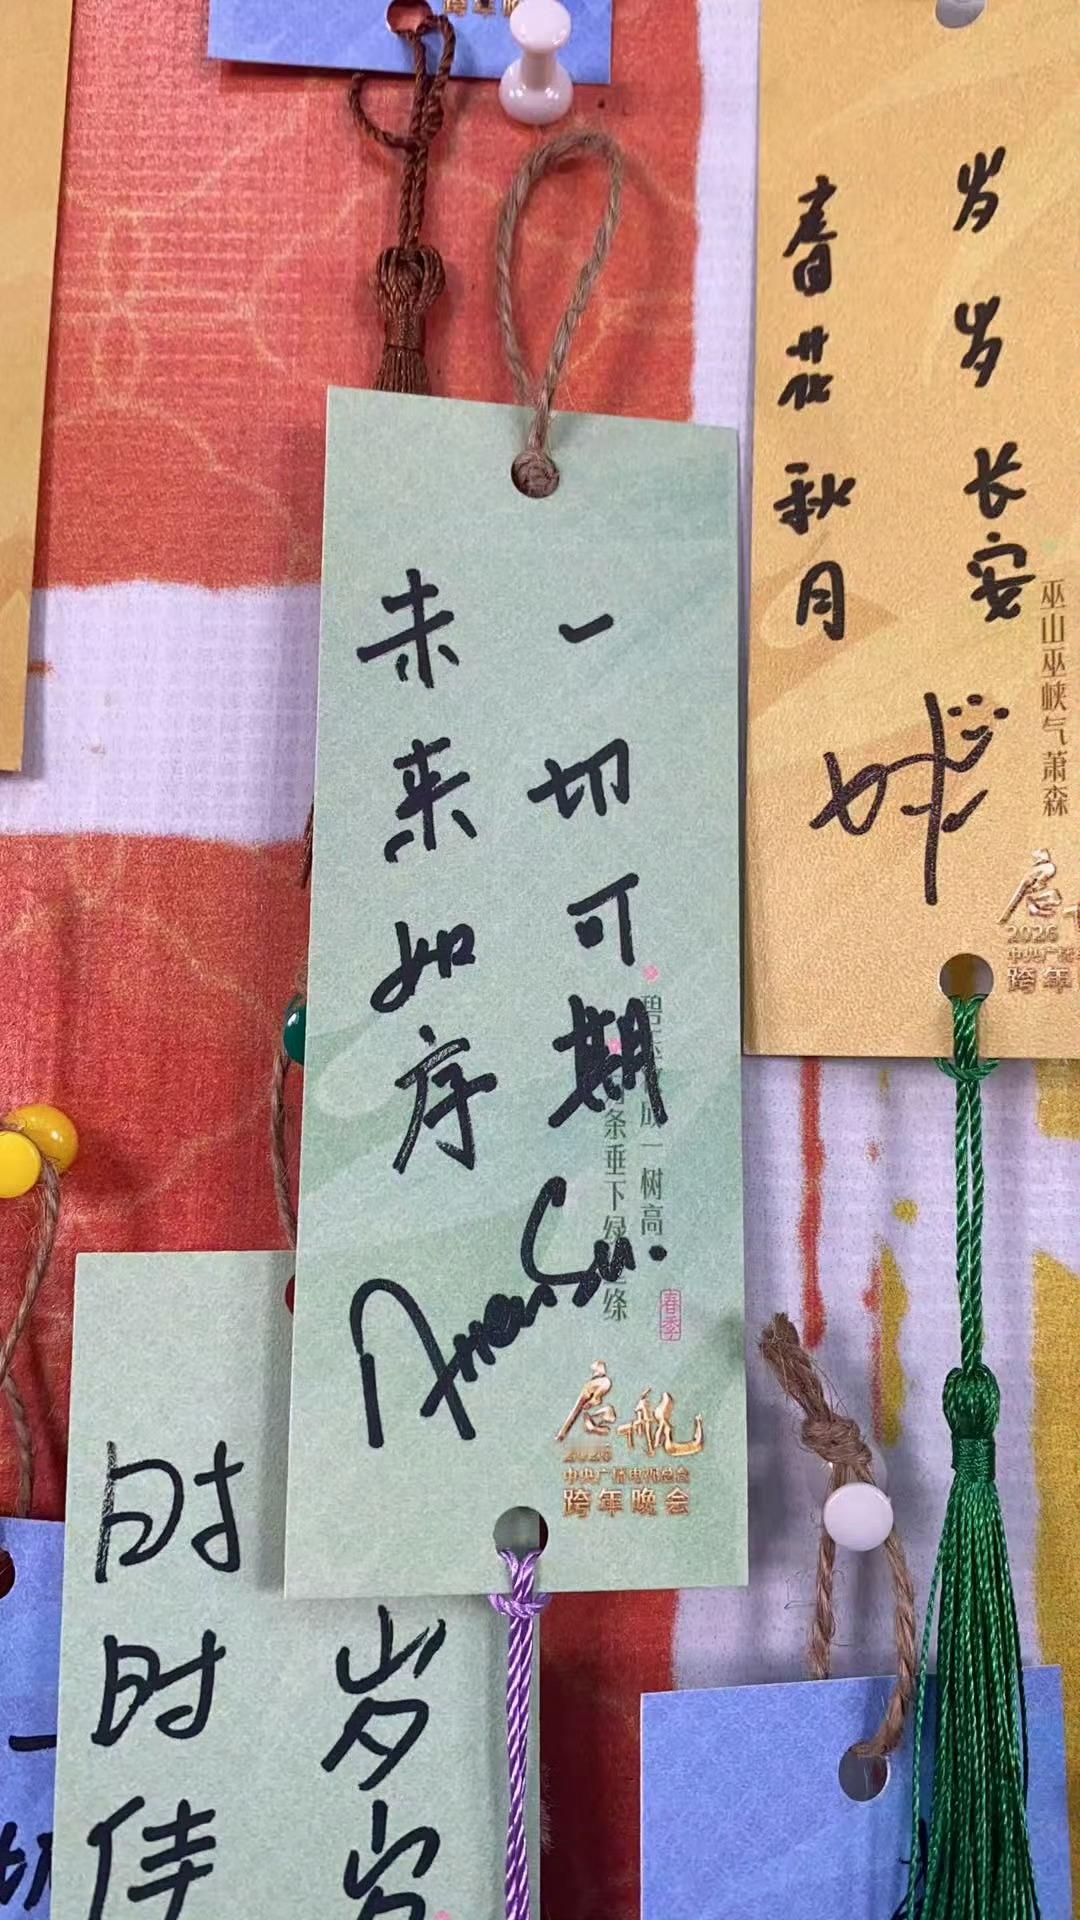 跨年晚
一切可期
未来如序
Amen Su.
碧玉妆成一树高
条垂下绿丝绦
春季
启航
2026
中央广播电视总台
跨年晚会
岁岁长安
春花秋月
巫山巫峡气萧森
启航
2026
中央广播
跨年
岁岁
时时佳
一切